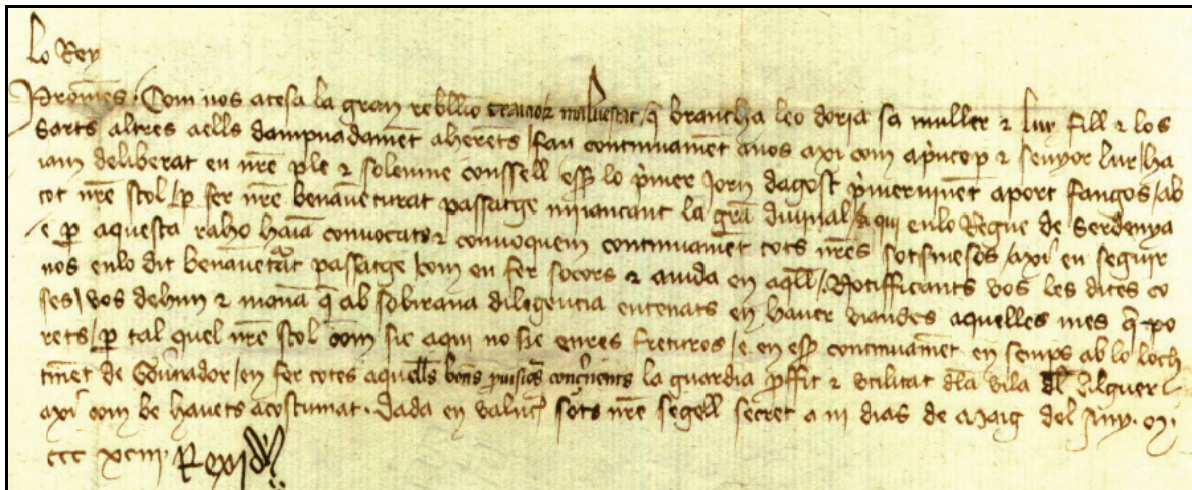 Lo Rey
Promens. Com nos atesa la gran rebellio traicio & malvestat / q̃ brancha leo doria sa muller & lur fill & los
sarts altres aells dampnadament aherẽts / fan continuamẽt anos axi com aprincep & senyor lur / ha
iam deliberat en nr̃e ple & solemne conssell / esp̃ lo p̃mer jorn dagost p̃mervinẽt aport fangos / ab
tot nr̃e stol / p̃ fer nr̃e benavẽturat passatge mijançant la gr̃a divinal / aqui enlo Regne de Serdenya
e p̃ aquesta raho haiã convocats & convoquem continuamẽt tots nr̃es sotsmesos / axi en seguir
nos enlo dit benavẽtũat passatge / com en fer socors & aiuda en aq̃ll /. Notifficants vos les dites co
ses / vos dehim & manã q̃ ab sobirana diligencia entenats en haver viandes aquelles mes q̃ po
rets / p̃ tal quel nr̃e stol com sie aqui no sie enres freturos / e en esp̃ continuamẽt en semps ab lo loch
tinẽt de Gov̉nador / en fer totes aquells bons p̃visions conṽinents la guardia p̃ffit & utilitat dla vila dl Alguer
axi com be havets acostumat. dada en valenc̃ sots nr̃e segell secret a iii dias de Maig del Any. M.
ccc xciii. Rex J